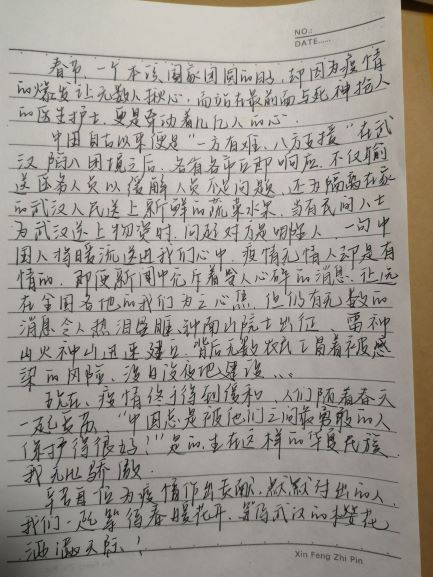 NO.:
DATE.....
春节,一个本该阖家团圆的日子,却因为疫情
的爆发让无数人揪心,而站在最前面与死神抢人
的医生护士,更是牵动着几亿人的心.
中国自古以来便是"一方有难,八方支援"在武
汉陷入困境之后,各省各市立即响应.不仅输
送医务人员以缓解人员不足问题,还为隔离在家
的武汉人民送上新鲜的蔬菜水果.当有民间人士
为武汉送上物资时.问起对方是哪些人 一句中
国人将暖流送进我们心中.疫情无情人却是有
情的.即便新闻中充斥着令人心碎的消息.让远
在全国各地的我们为之心焦,但仍有无数的
消息令人热泪盈眶,钟南山院士出征、雷神
山火神山迅速建立.背后无数农民工冒着被感
染的风险,没日没夜地建设...
现在,疫情终于得到缓和,人们随着春天
一起
"中国总是被他们之间最勇敢的人
保护得很好!"是的,生在这样的华夏民族
我无比骄傲.
每一位为疫情作出贡献,默默付出的人.
我们一起等待春暖花开.等待武汉的樱花
洒满天际!
Xin Feng Zhi Pin